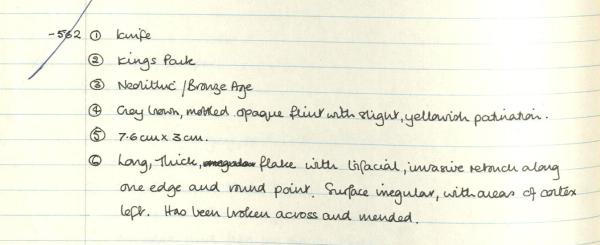 -562 ① Knife
② Kings Park
③ Neolithic / Bronze Age
④ Grey brown, mottled opaque flint with slight, yellowish patination.
⑤ 7.6cm x 3cm.
⑥ Long, thick, irregular flake with bifacial, invasive retouch along
one edge and round point. Surface irregular, with areas of cortex
left. Has been broken across and mended.